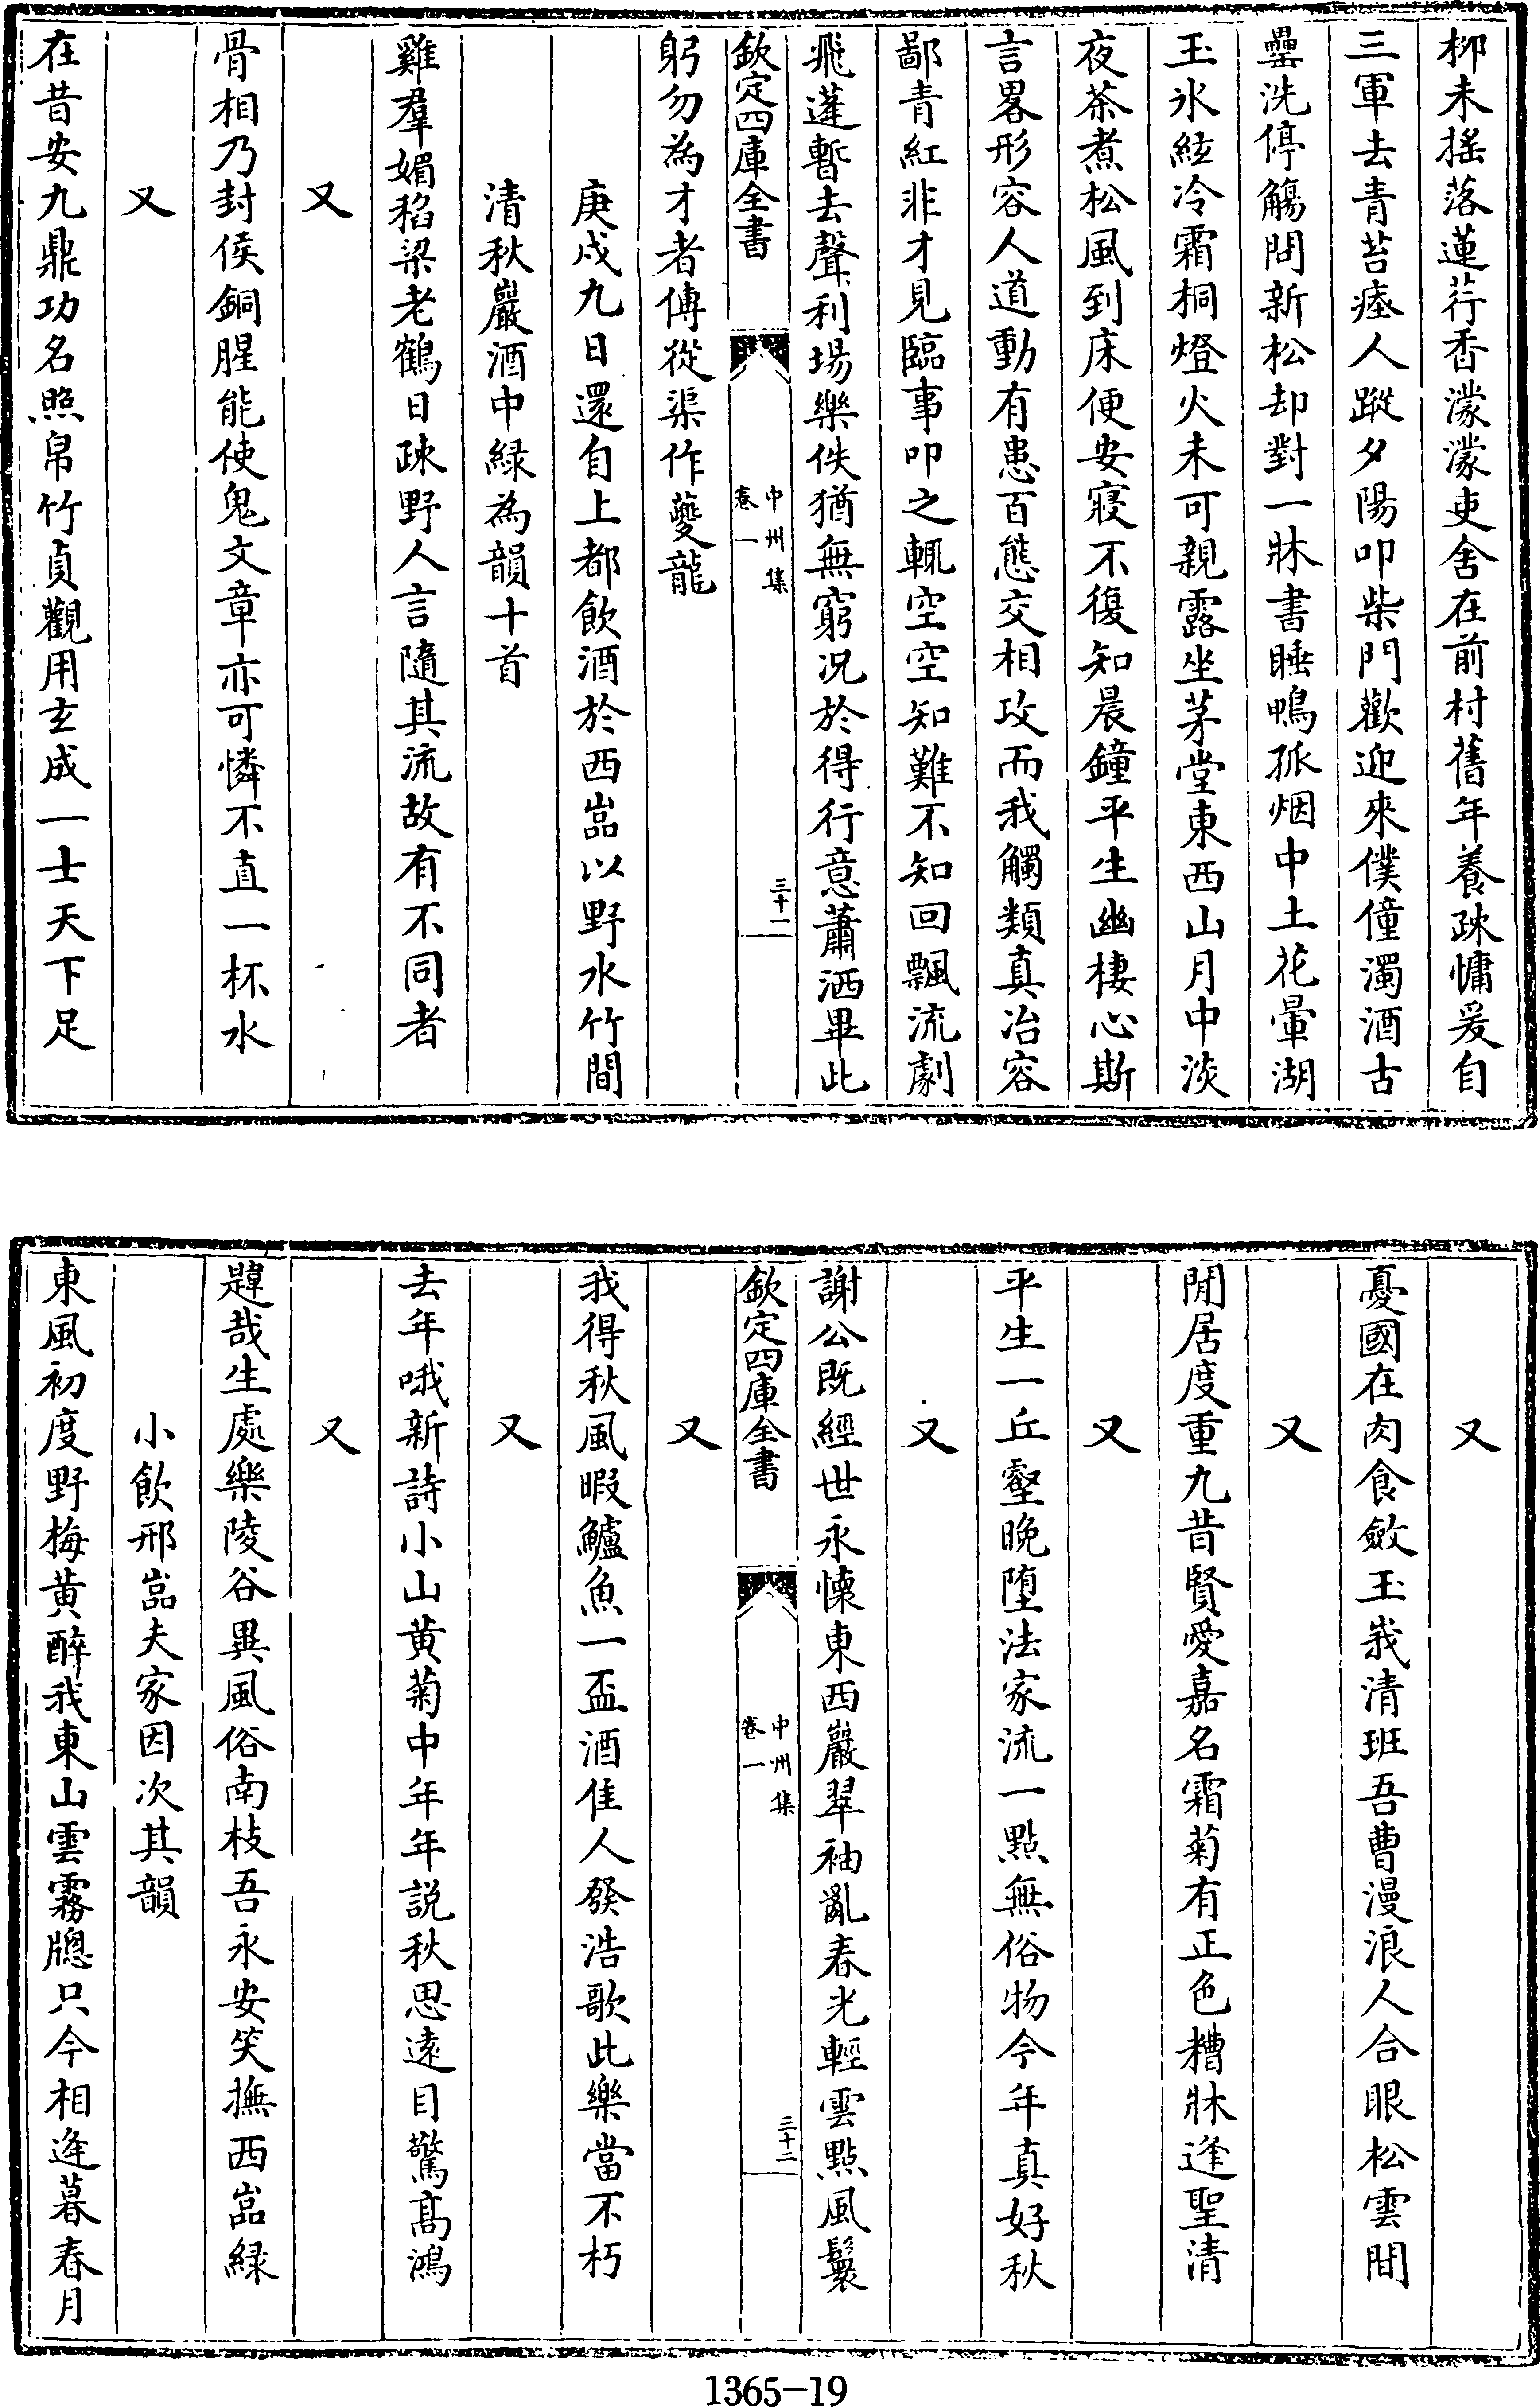 柳未搖落蓮荇香濛濛吏舍在前村舊年養疎慵爰自
三軍去青苔瘞人蹤夕陽叩柴門歡迎來僕僮濁酒古
罍洗停觴問新松却對一牀書睡鴨孤烟中土花暈湖
玉氷絃冷霜桐燈火未可親露坐茅堂東西山月中淡
夜茶煮松風到床便安寢不復知晨鐘平生幽棲心斯
言畧形容人道動有患百態交相攻而我觸類真冶容
鄙青紅非才見臨事叩之輒空空知難不知回飄流劇
飛蓬暫去聲利場樂佚猶無窮況於得行意蕭洒畢此
欽定四庫全書
中州集
卷一
三十一
躬勿為才者傳從渠作夔龍
庚戌九日還自上都飲酒於西嵓以野水竹間
清秋巖酒中緑為韻十首
雞羣媚稻粱老鶴日疎野人言隨其流故有不同者
又
骨相乃封侯銅腥能使鬼文章亦可憐不直一杯水
又
在昔安九鼎功名照帛竹貞觀用玄成一士天下足
又
憂國在肉食斂玉峩清班吾曹漫浪人合眼松雲間
又
閒居度重九昔賢愛嘉名霜菊有正色糟牀逢聖清
又
平生一丘壑晚墮法家流一點無俗物今年真好秋
又
謝公既經世永懷東西巖翠袖亂春光輕雲點風鬟
欽定四庫全書
中州集
卷一
三十二
又
我得秋風暇鱸魚一盃酒佳人發浩歌此樂當不朽
又
去年哦新詩小山黄菊中年年説秋思遠目驚髙鴻
又
韙哉生處樂陵谷異風俗南枝吾永安笑撫西嵓緑
小飲邢嵓夫家因次其韻
東風初度野梅黄醉我東山雲霧牕只今相逢暮春月
1365-19